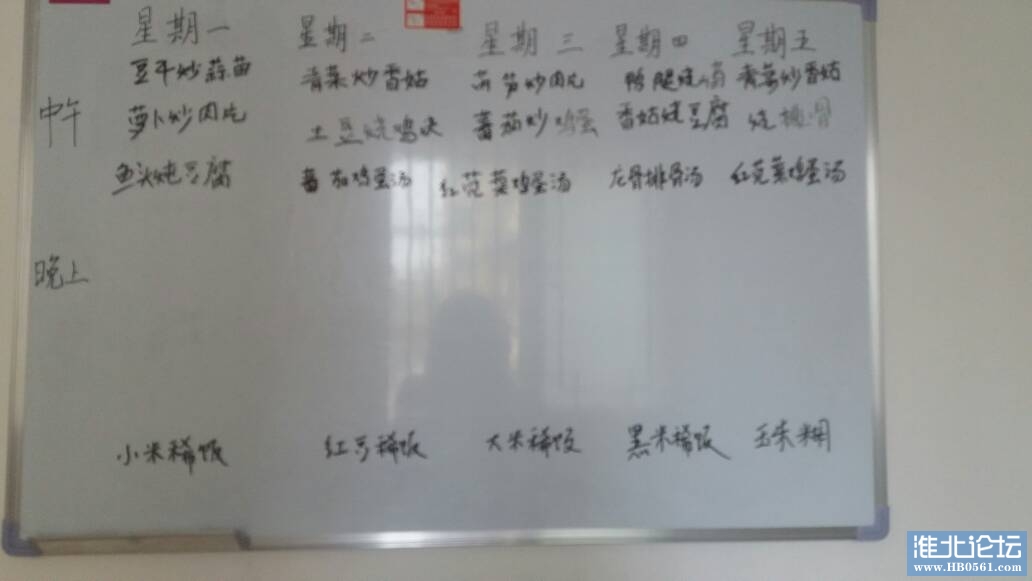 星期一 星期二 星期三 星期四 星期五
豆干炒蒜苗 青菜炒香菇 莴笋炒肉片 鸭腿烧 青菜炒香菇
中午
萝卜炒肉片 土豆烧鸡块 蕃茄炒鸡蛋 香菇烧豆腐 烧排骨
鱼头炖豆腐 蕃茄鸡蛋汤 红苋菜鸡蛋汤 龙骨排骨汤 红苋菜鸡蛋汤
晚上
小米稀饭 红豆稀饭 大米稀饭 黑米稀饭 玉米糊
淮北论坛
WWW.HB0561.COM